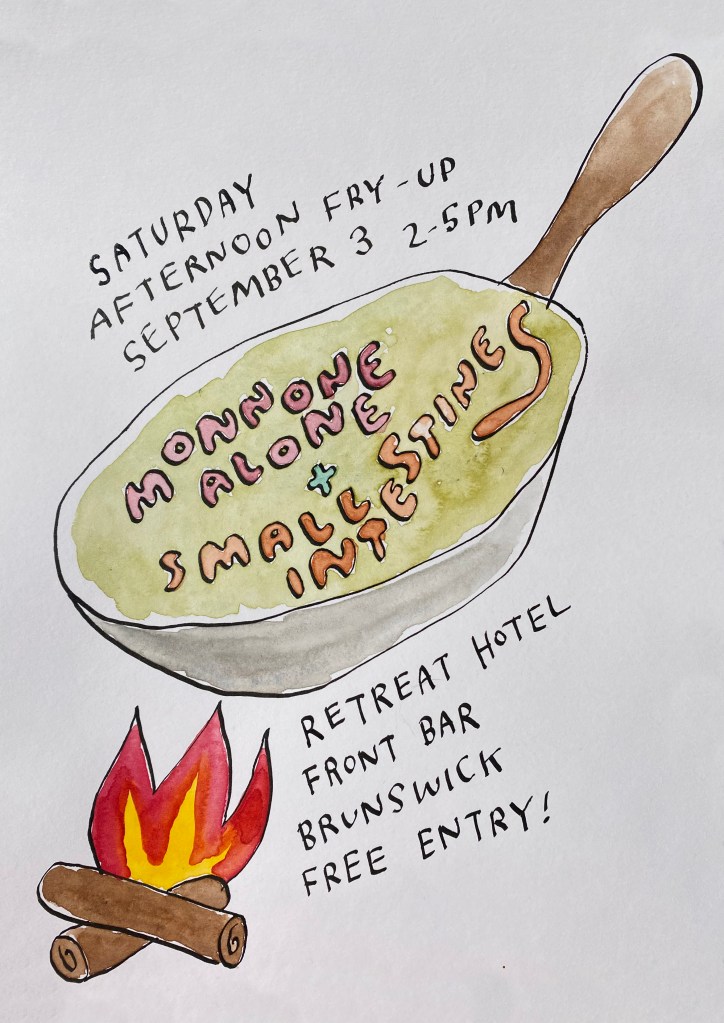 SATURDAY
AFTERNOON FRY-UP
SEPTEMBER 3 2-5PM
MONNONE
ALONE
+
SMALL
INTESTINES
RETREAT HOTEL
FRONT BAR
BRUNSWICK
FREE ENTRY!